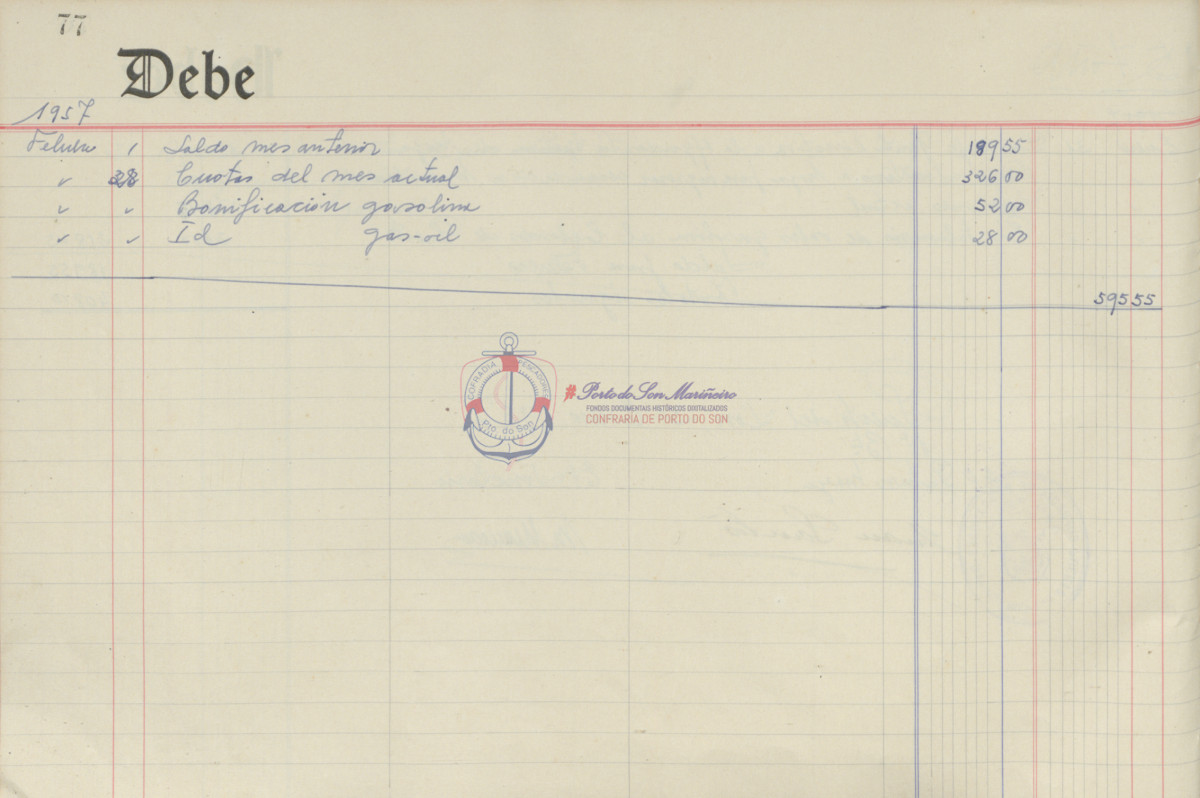 77
Debe
1957
Febrero 1 Saldo mes anterior 189 55
" 28 Cuotas del mes actual 326 00
" " Bonificación gasolina 52 00
" " Id gas-oil 28 00
595 55
COFRADIA PESCADORES
Pto. do Son
# Porto do Son Mariñeiro
FONDOS DOCUMENTAIS HISTÓRICOS DIXITALIZADOS
CONFRARÍA DE PORTO DO SON